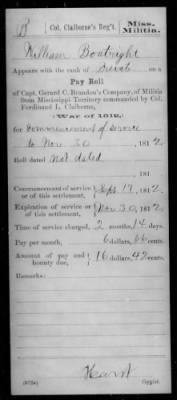 B | Col. Claiborne's Reg't. | Miss. Militia.
William Boutright
Appears with the rank of Privat on a
Pay Roll
of Capt. Gerard C. Brandon's Company, of Militia
from Mississippi Territory commanded by Col.
Ferdinand L. Claiborne,
(War of 1812,)
for Commencement of service
to Nov 30, 1812
Roll dated Not dated
, 181
Commencement of service or of this settlement, } Sept 17, 1812
Expiration of service or of this settlement, } Nov 30, 1812
Time of service charged, 2 months 14 days.
Pay per month, 6 dollars, 66 cents.
Amount of pay and bounty due, } 16 dollars, 42 cents.
Remarks:
Copyist.